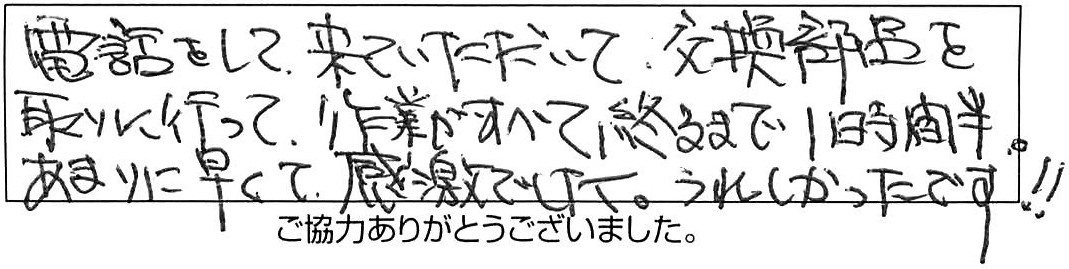 電話をして、来ていただいて、交換部品を
取りに行って、作業がすべて終るまで1時間半。
あまりに早くて、感激でした。うれしかったです!!
ご協力ありがとうございました。